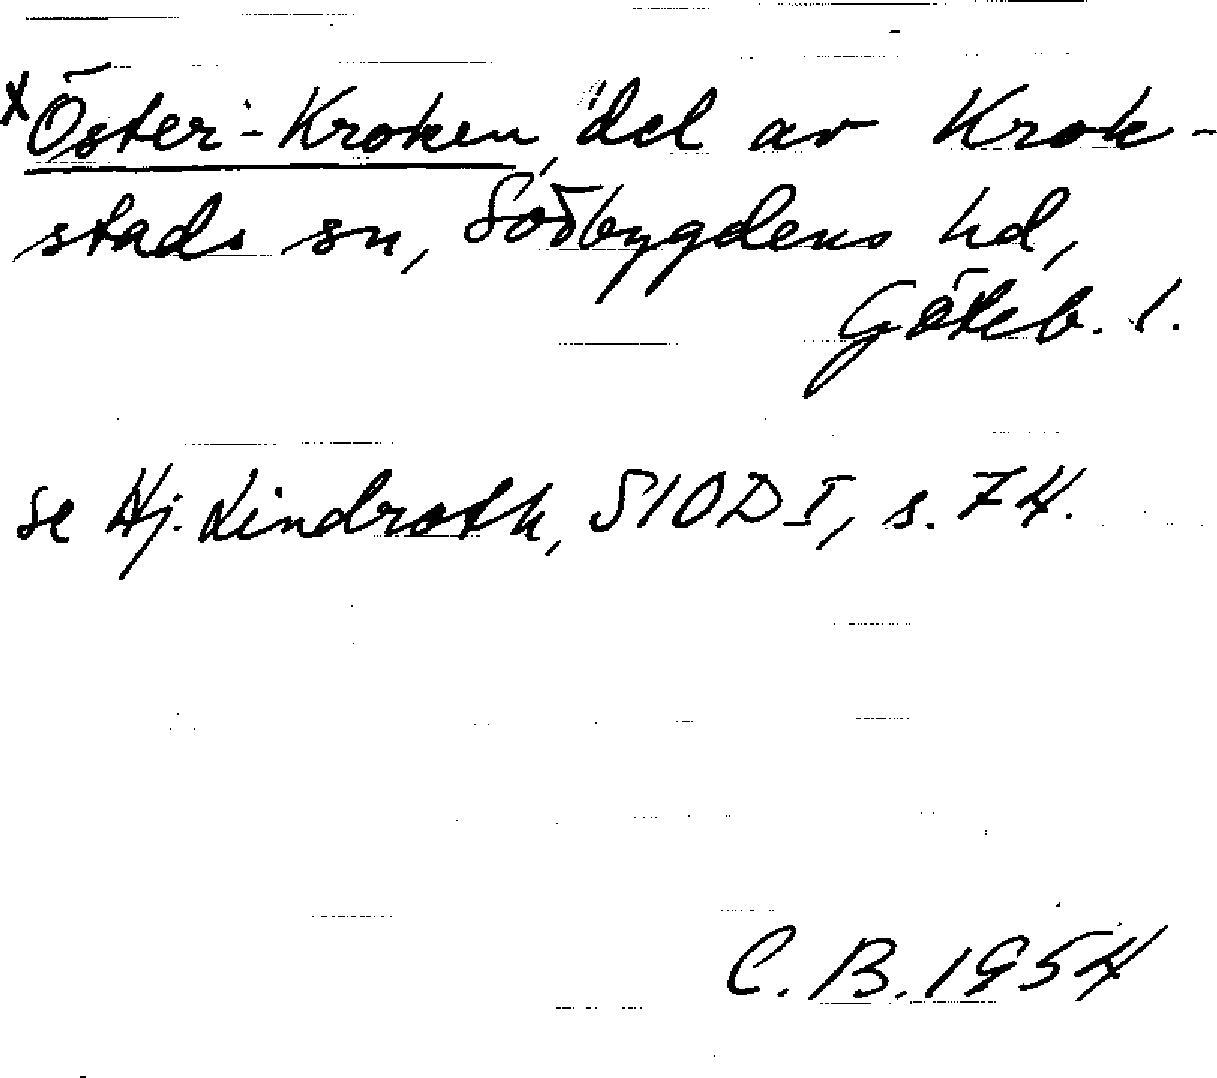 *Öster-Kroken, del av Krok-
stads sn, Sörbygdens hd,
Göteb. l.
se Hj. Lindroth, SIOD I, s. 74.
C. B. 1954